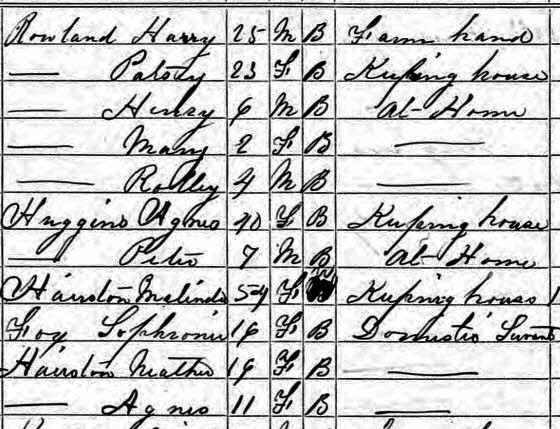 Rowland Harry 25 M B Farm hand
—— Patsey 23 F B Keeping house
—— Henry 6 M B At Home
—— Mary 2 F B ——
—— 4 M B ——
Huggins Agnes 40 F B Keeping house
—— Peter 7 M B At Home
Hairston Malinda 54 F Keeping house 1
Foy Sophronia 16 F B Domestic Servant
Hairston 19 F B ——
—— Agnes 11 F B ——